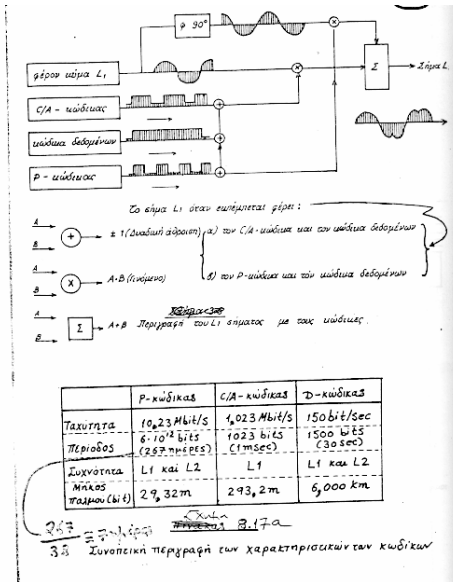 φ 90°
φέρον κύμα L₁
Σ
Σήμα L
C/A - κώδικας
κώδικα δεδομένων
P - κώδικας
Το σήμα L₁ όταν εκπέμπεται φέρει:
A
B
+
± 1 (Δυαδική άθροιση)
α) τον C/A-κώδικα και τον κώδικα δεδομένων
A
B
X
A·B (Γινόμενο)
β) τον P-κώδικα και τον κώδικα δεδομένων
A
B
Σ
A+B Περιγραφή του L₁ σήματος με τους κώδικες.
P-κώδικας C/A-κώδικας D-κώδικας
Ταχύτητα 10,23 Mbit/s 1,023 Mbit/s 150 bit/sec
Περίοδος 6·10¹² bits (267 ημέρες) 1023 bits (1msec) 1500 bits (30sec)
Συχνότητα L1 και L2 L1 L1 και L2
Μήκος παλμου (bit) 29,32m 293,2m 6,000 km
Σχήμα 8.17α
267
38
Συνοπτική περιγραφή των χαρακτηριστικών των κωδίκων